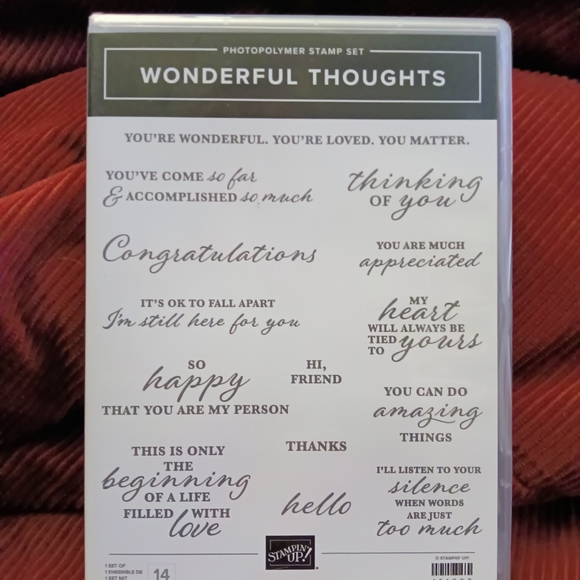 PHOTOPOLYMER STAMP SET
WONDERFUL THOUGHTS
YOU'RE WONDERFUL. YOU'RE LOVED. YOU MATTER.
YOU'VE COME so far
& ACCOMPLISHED so much
thinking
OF you
Congratulations
YOU ARE MUCH
appreciated
IT'S OK TO FALL APART
I'm still here for you
MY
heart
WILL ALWAYS BE
TIED
TO yours
SO
happy
THAT YOU ARE MY PERSON
HI,
FRIEND
YOU CAN DO
amazing
THINGS
THIS IS ONLY
THE
beginning
OF A LIFE
FILLED WITH
love
THANKS
hello
I'LL LISTEN TO YOUR
silence
WHEN WORDS
ARE JUST
too much
STAMPIN' UP!
© STAMPIN' UP!
1 SET OF
1 ENSEMBLE DE
1 SET MIT
14